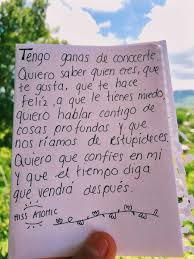 Tengo ganas de conocerte.
Quiero saber quien eres, que
te gusta, que te hace
feliz, a que le tienes miedo,
quiero hablar contigo de
cosas profundas y que
nos riamos de estupideces.
Quiero que confies en mi
y que el tiempo diga
que vendrá después.
MISS ATOMIC